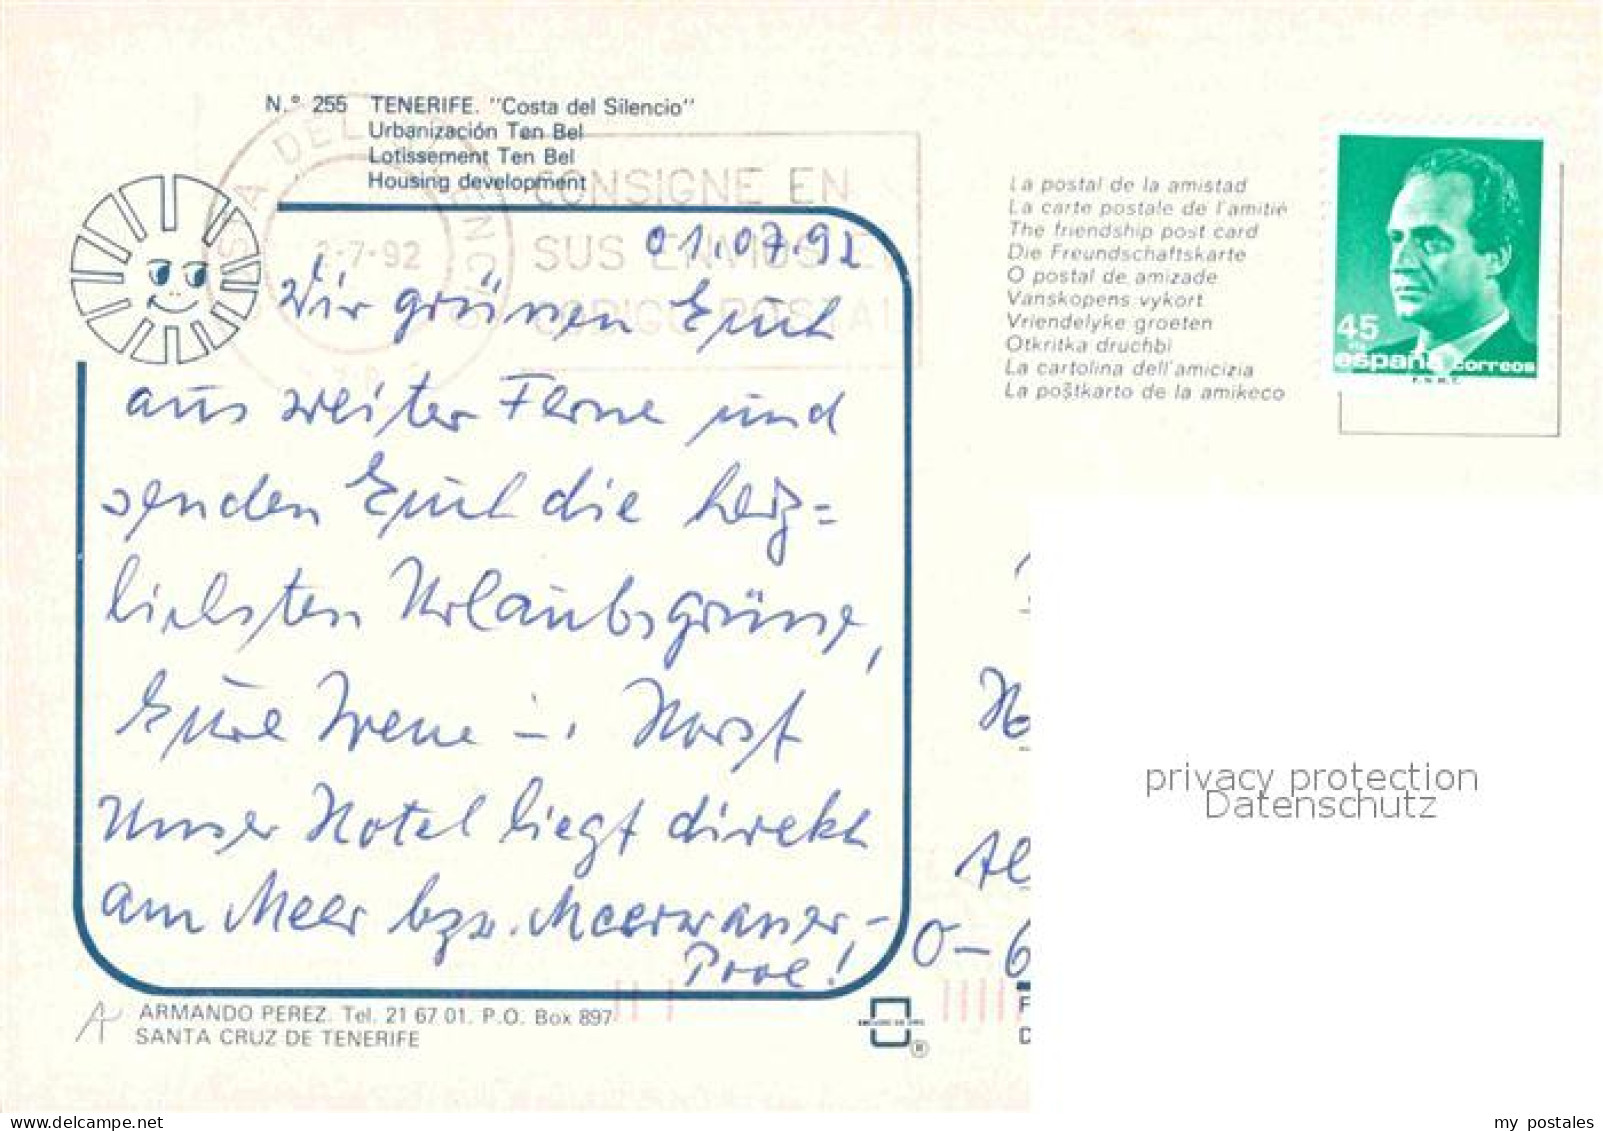 N.° 255 TENERIFE. "Costa del Silencio"
Urbanización Ten Bel
Lotissement Ten Bel
Housing development
2-7-92
CONSIGNE EN
SUS ENVIOS EL
CODIGO POSTAL
01.07.92
Wir grüssen Euch
aus weiter Ferne und
senden Euch die herz=
lichsten Urlaubsgrüsse,
Eure Irene u. Horst
Unser Hotel liegt direkt
am Meer bzw. Meerwasser-
Pool!
ARMANDO PEREZ. Tel. 21 67 01. P.O. Box 897
SANTA CRUZ DE TENERIFE
La postal de la amistad
La carte postale de l'amitié
The friendship post card
Die Freundschaftskarte
O postal de amizade
Vanskopens vykort
Vriendelyke groeten
Otkritka druchbi
La cartolina dell'amicizia
La poŝtkarto de la amikeco
45
PTA
españa correos
F.N.M.T.
O-6
privacy protection
Datenschutz
my postales
www.delcampe.net